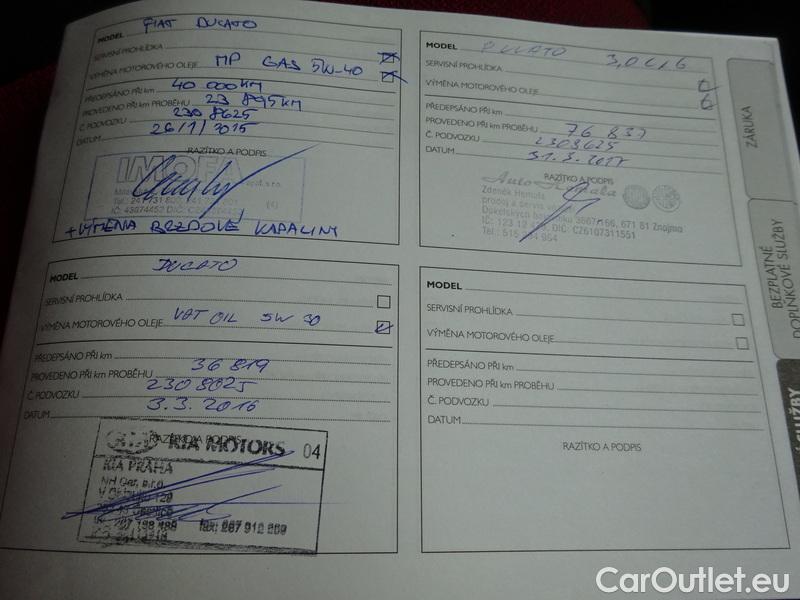 MODEL FIAT DUCATO
SERVISNÍ PROHLÍDKA
VÝMĚNA MOTOROVÉHO OLEJE MP GAS 5W-40
PŘEDEPSÁNO PŘI km 40 000KM
PROVEDENO PŘI KM PROBĚHU 23 895KM
Č. PODVOZKU 2308625
DATUM 26/1/2015
RAZÍTKO A PODPIS
IMOFA
spol. s r.o.
Tel.: 241 731
IČ: 43074452 DIČ:
(4)
+ VÝMĚNA BRZDOVÉ KAPALINY
MODEL DUCATO 3,0
SERVISNÍ PROHLÍDKA
VÝMĚNA MOTOROVÉHO OLEJE
PŘEDEPSÁNO PŘI km
PROVEDENO PŘI KM PROBĚHU 76 837
Č. PODVOZKU 2308625
DATUM 31.3.2017
RAZÍTKO A PODPIS
Auto
Zdeněk
prodej a servis
671 81 Znojmo
IČ: 123 12 DIČ: CZ6107311551
Tel.: 515 954
MODEL DUCATO
SERVISNÍ PROHLÍDKA
VÝMĚNA MOTOROVÉHO OLEJE VAT OIL 5W 30
PŘEDEPSÁNO PŘI km
PROVEDENO PŘI KM PROBĚHU 36 819
Č. PODVOZKU 2308025
DATUM 3.3.2016
RAZÍTKO A PODPIS
KIA MOTORS 04
KIA PRAHA
NH Car, s.r.o.
fax: 267 912
MODEL
SERVISNÍ PROHLÍDKA
VÝMĚNA MOTOROVÉHO OLEJE
PŘEDEPSÁNO PŘI km
PROVEDENO PŘI KM PROBĚHU
Č. PODVOZKU
DATUM
RAZÍTKO A PODPIS
ZÁRUKA
BEZPLATNÉ
DOPLŇKOVÉ SLUŽBY
SLUŽBY
CarOutlet.eu